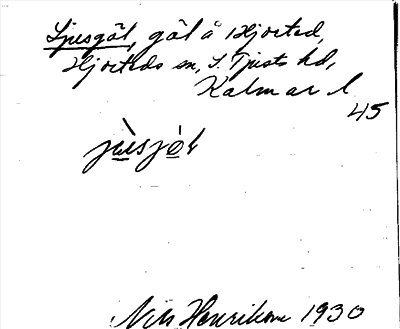 Ljusgöl, göl å Hjorted,
Hjorteds sn, S. Tjusts hd,
Kalmar l
45
jùsjö̀l
Nils Henrikson 1930